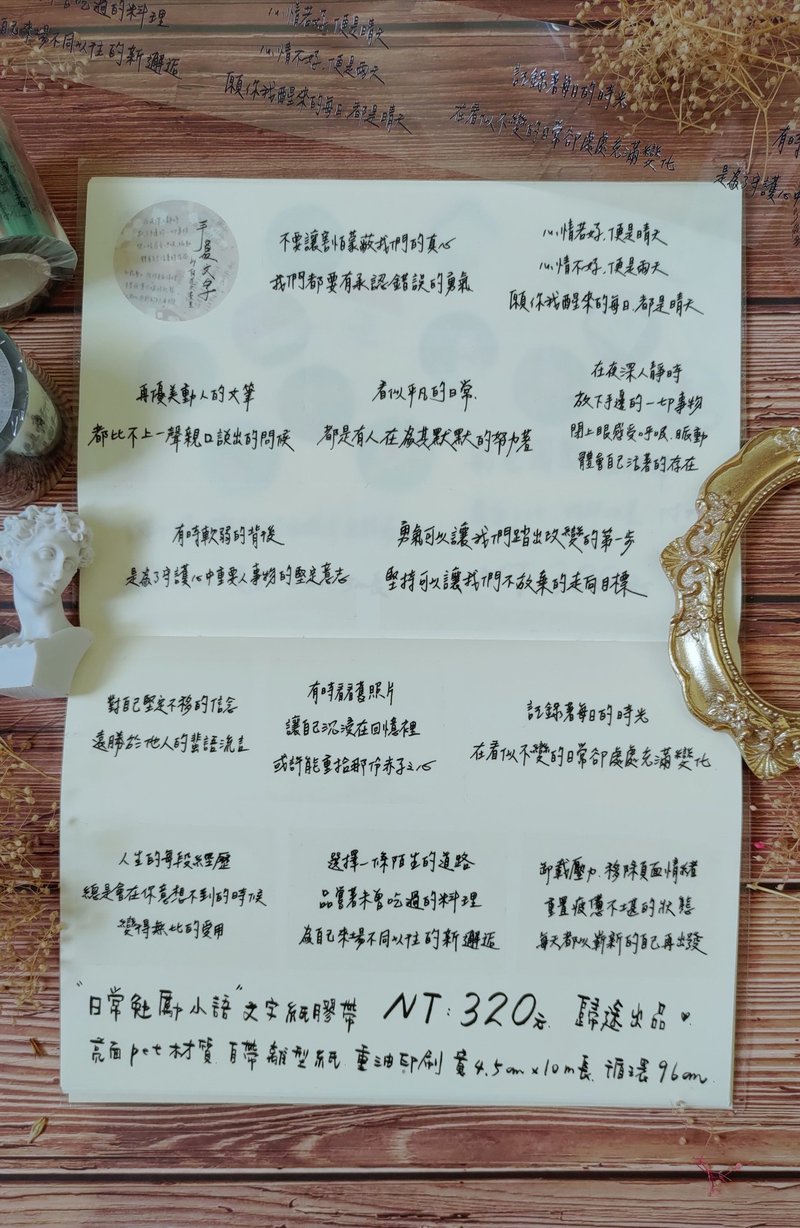 吃過的料理
自己來場不同以往的新邂逅
心情若好,便是晴天
心情不好,便是雨天
願你我醒來的每日,都是晴天
記錄著每日的時光
在看似不變的日常卻處處充滿變化
有時
是為了守護心中
文字
不要讓害怕蒙蔽我們的真心
我們都要有承認錯誤的勇氣
心情若好,便是晴天
心情不好,便是雨天
願你我醒來的每日,都是晴天
再優美動人的文筆
都比不上一聲親口說出的問候
看似平凡的日常,
都是有人在為其默默的努力著
在夜深人靜時
放下手邊的一切事物
閉上眼感受呼吸、脈動
體會自己活著的存在
有時軟弱的背後
是為了守護心中重要人事物的堅定意志
勇氣可以讓我們踏出改變的第一步
堅持可以讓我們不放棄的走向目標
對自己堅定不移的信念
遠勝於他人的蜚語流言
有時看看舊照片
讓自己沉浸在回憶裡
或許能重拾那份赤子之心
記錄著每日的時光
在看似不變的日常卻處處充滿變化
人生的每段經歷
總是會在你意想不到的時候
變得無比的受用
選擇一條陌生的道路
品嘗著未曾吃過的料理
為自己來場不同以往的新邂逅
卸載壓力、移除負面情緒
重置疲憊不堪的狀態
每天都以嶄新的自己再出發
"日常勉勵小語"文字紙膠帶 NT:320元 歸途出品♥
亮面pet材質、自帶離型紙、重油印刷 寬4.5cm x 10m長、循環96cm